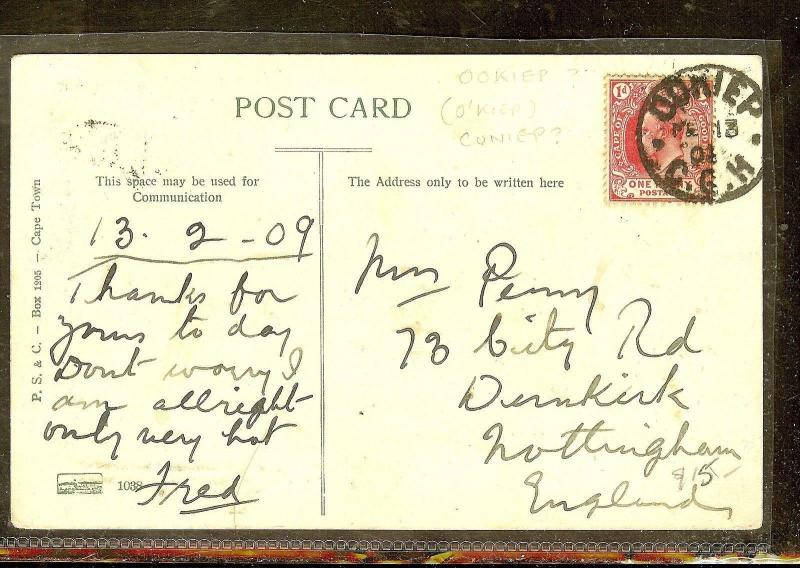 OOKIEP ?
(O'KIEP)
CONIEP?
POST CARD
This space may be used for
Communication
The Address only to be written here
1d
CAPE OF GOOD
ONE
POSTAGE
OOKIEP
13
C.G.H
P. S. & C. — Box 1205 — Cape Town
13. 2 - 09
Thanks for
yours to day
Dont worry I
am allright
only very hot
Fred
1038
Mrs Penny
73 City Rd
Dunkirk
Nottingham
England
$15-